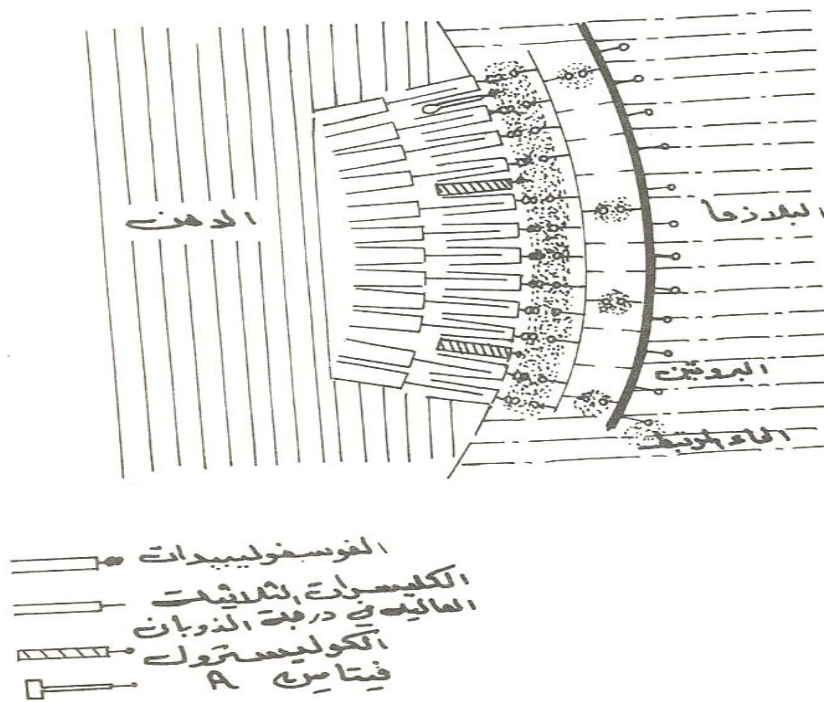 الدهن
البلازما
البروتين
الماء المرتبط
الفوسفوليبيدات
الكليسرات الثلاثيات
العاليه في درجة الذوبان
الكوليسترول
فيتامين A